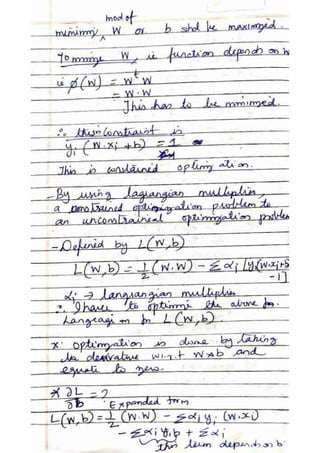 mod of
minimizg W or b shd be maximized.
To minimize W, ie function depends on W
ie ø(W) = WᵗW
= W·W
This has to be minimized.
∴ their Constraint is
yᵢ (W·Xᵢ + b) = 1
This is constrained optimization.
- By using lagrangian multiplier,
a constrained optimization problem to
an unconstrained optimization problem
- Defined by L(W,b)
L(W,b) = ½ (W·W) - Σαᵢ [yᵢ(W·xᵢ+b)
-1]
αᵢ → langrangian multiplier
∴ I have to optimize the above fn.
Langragian fn L(W,b).
x. optimization is done by taking
the derivative w.r.t W & b and
equate to zero.
* ∂L/∂b = ?
Expanded form
L(W,b) = ½ (W·W) - Σαᵢ yᵢ (W·xᵢ)
- Σαᵢ yᵢ b + Σαᵢ
this term depends on b